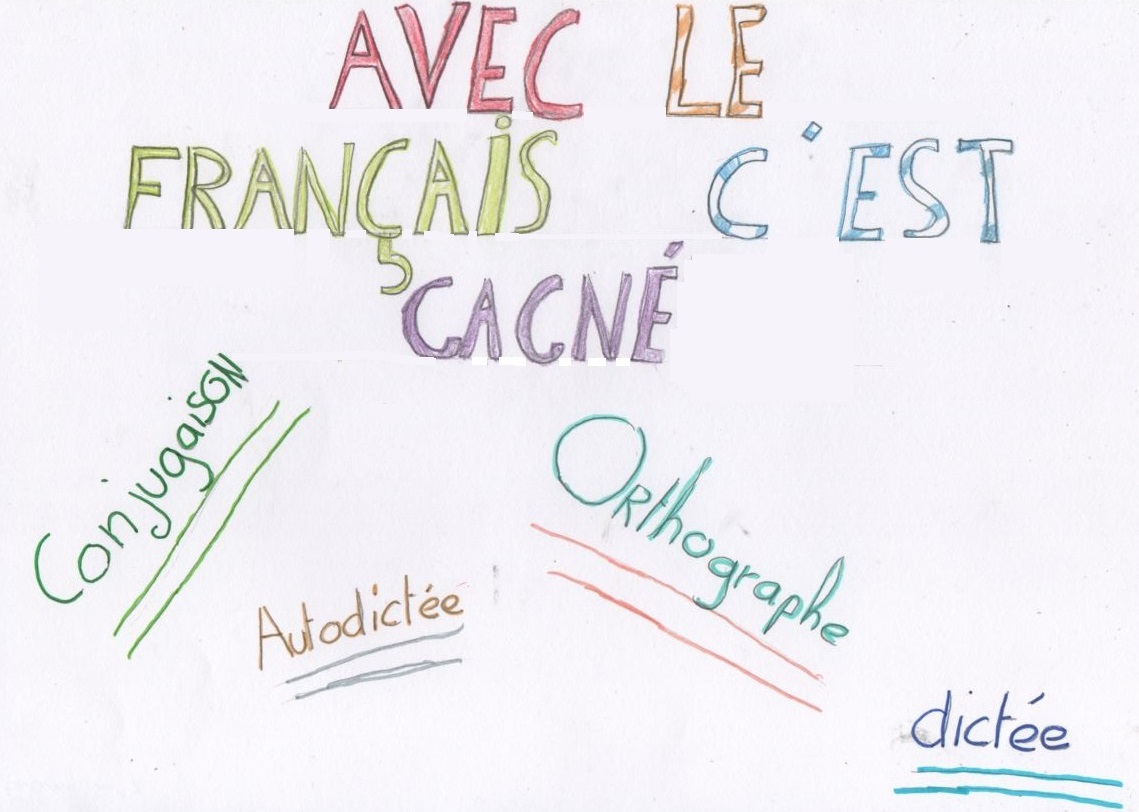 AVEC LE
FRANÇAIS C'EST
CACNÉ
Conjugaison
Orthographe
Autodictée
dictée